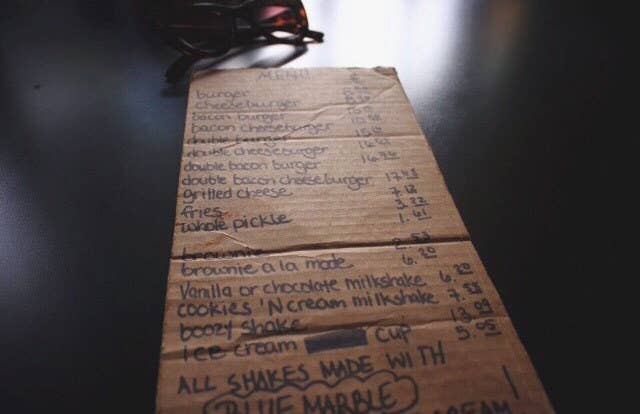 MENU
burger
cheeseburger
bacon burger
bacon cheeseburger
double burger
double cheeseburger
double bacon burger
double bacon cheeseburger 17.43
grilled cheese 7.12
fries 3.22
whole pickle 1.61
brownie 2.53
brownie a la mode 6.20
Vanilla or chocolate milkshake 6.20
COOKIES 'N Cream milkshake 7.58
boozy shake 13.09
ice cream cup 5.05
ALL SHAKES MADE WITH
BLUE MARBLE
CREAM!